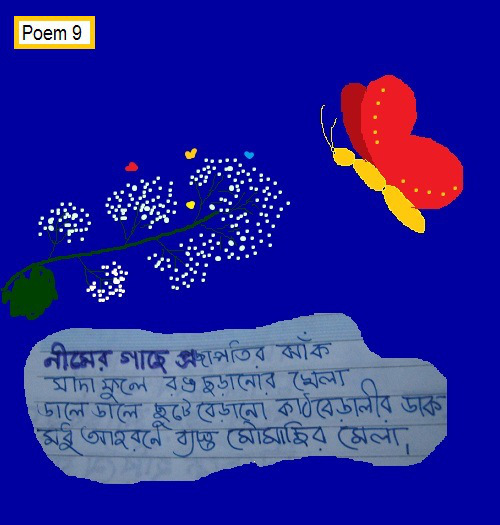 Poem 9
নীমের গাছে প্রজাপতির ঝাঁক
সাদা ফুলে রঙ ছড়ানোর খেলা
ডালে ডালে ছুটে বেড়ানো কাঠবেড়ালীর ডাক
মধু আহরনে ব্যস্ত মৌমাছির মেলা,